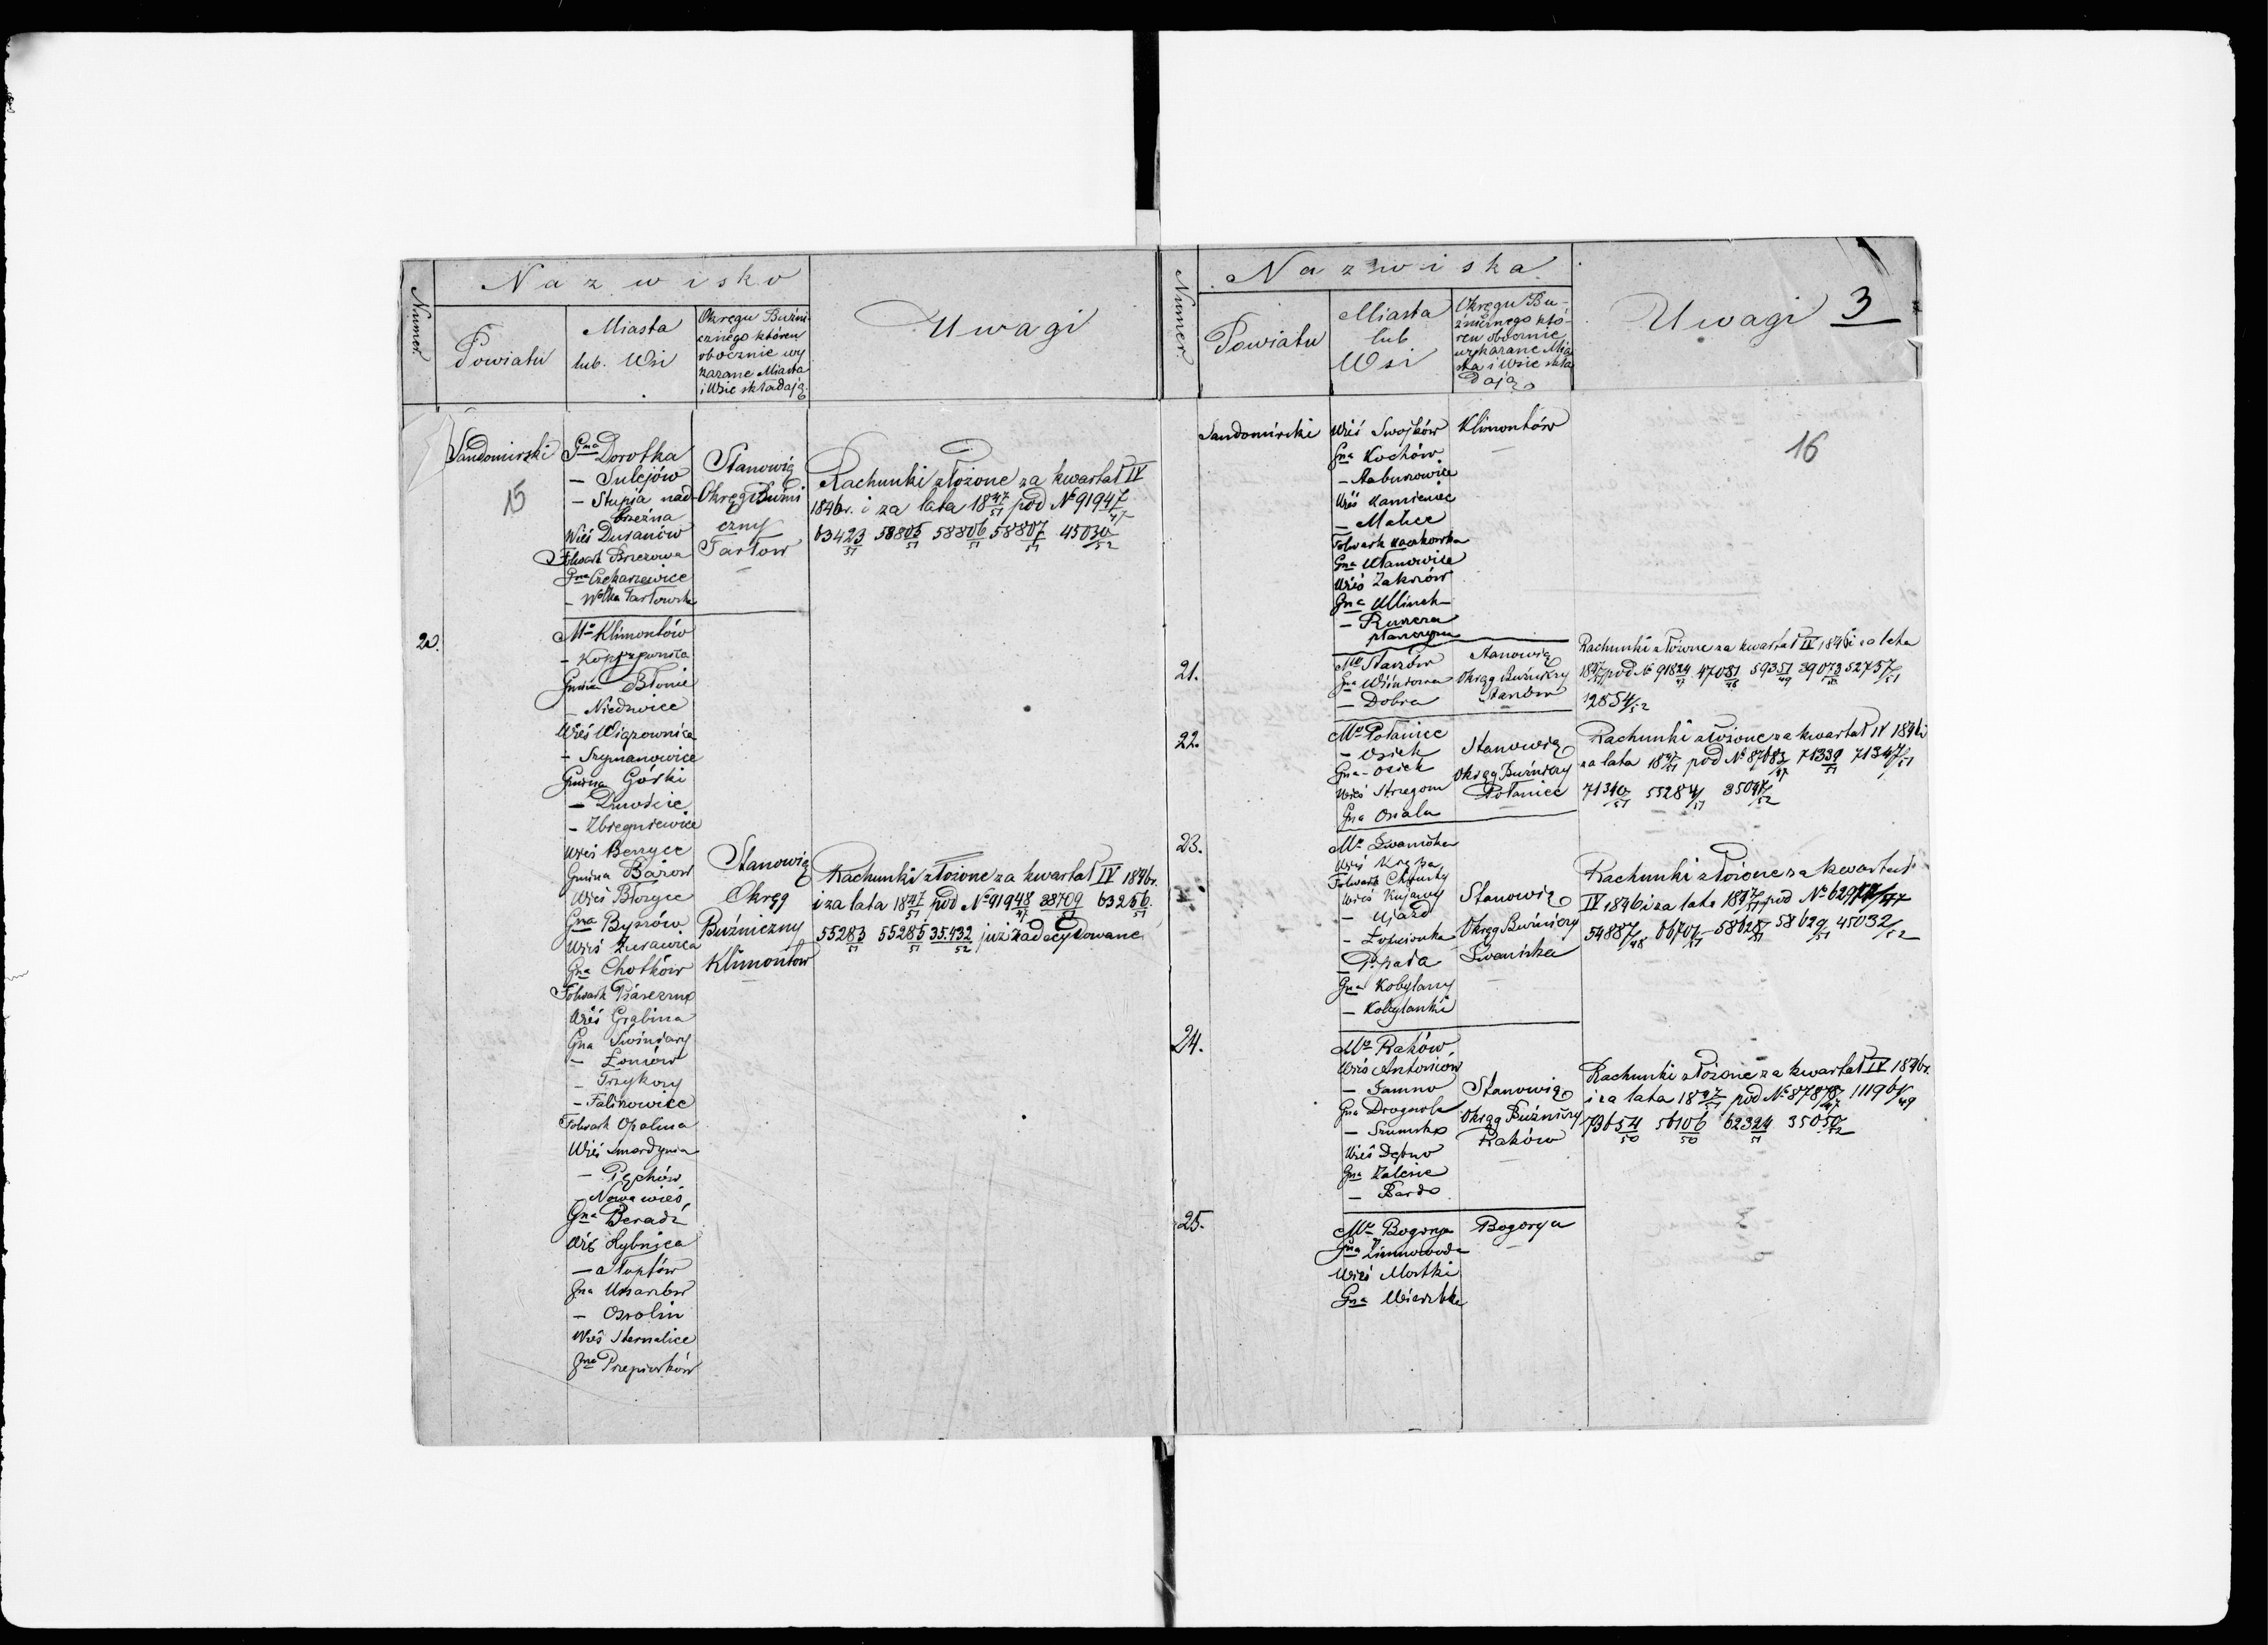 Numer.
Nazwisko
Powiatu
Miasta
lub. Wsi
Okręgu Buźni-
cznego któren
obocznie wy
kazane Miasta
i Wsie składają.
Uwagi
Sandomirski
15
Gna Dorotka
— Sulejów
— Słupia nad-
brzeźna
Wieś Duranów
Folwark Brzezowa
Gna Czekarzewice
— Wólka Tarłowska
Stanowią
Okręg Buźni
czny
Tarłow
Rachunki złożone za kwartał IV
1846r. i za lata 1847/51 pod № 91947/47
63423/51 58805/51 58806/51 58807/51 45030/52
20.
Mo Klimontów
— Koprzywnica
Gmina Błonie
— Niedzwice
Wieś Wiązownica
— Szymanowice
Gmina Górki
— Dmosice
— Zbiegniewice
Wieś Beszyce
Gmina Bazów
Wieś Błozyce
Gna Byszów
Wieś Zurawica
Gna Chotków
Folwark Piaseczno
Wieś Grabina
Gna Swiniary
— Łoniów
— Trzykosy
— Falinowice
Folwark Opalina
Wieś Smerdynia
— Pęchów
— Nowa wieś
Gna Beradz
Wieś Rybnica
—
Gna Usarzów
— Ossolin
Wieś Sternalice
Gna Przepiorków
Stanowią
Okręg
Buźniczny
Klimontow
Rachunki złożone za kwartał IV 1846r.
i za lata 1847/51 pod № 91948/47 38709/51 63256/51
55283/51 55285/51 35.432/52 juz zadecydowane
Numer.
Nazwiska
Powiatu
Miasta
lub
Wsi
Okręgu Bu-
źnicznego któ-
ren obocznie
wykazane Mia
sta i Wsie skła
dają
Uwagi
3
16
Sandomirski
Wieś Swojków
Gna Kochów
— Nabuszowice
Wieś Kamieniec
— Malice
Folwark Kaczkowka
Gna Ułanowice
Wieś Zakrzów
Gna Ulinek
—
Klimontów
21.
Mo Staszów
Gna Wiśniowa
— Dobra
Stanowią
Okręg Buźniczny
Staszów
Rachunki złożone za kwartał IV 1846 i za lata
1847/51 pod № 91824/47 47081/48 59351/49 39073/50 52757/51
12854/52
22.
Mo Połaniec
— Osiek
Gna — Osiek
Wieś Strzegom
Gna Ossala
Stanowią
Okręg Buźniczny
Połaniec
Rachunki złożone za kwartał IV 1846 i
za lata 1847/51 pod № 87683/47 71339/51 71347/51
71340/51 55284/51 35047/52
23.
Mo Iwaniska
Wieś Krępa
Folwark
Wieś Kujawy
— Ujazd
— Łopacionka
—
Gna Kobylany
— Kobylanki
Stanowią
Okręg Buźniczny
Iwaniska
Rachunki złożone za kwartał
IV 1846 i za lata 1847/51 pod №
54887/48 66701/51 58628/51 58629/51 45032/52
24.
Mo Raków
Wieś Antoniów
— Jamno
Gna Drogowle
— Szumsko
Wieś Dębno
Gna Zalesie
— Bardo
Stanowią
Okręg Buźniczny
Raków
Rachunki złożone za kwartał IV 1846r.
i za lata 1847/51 pod № 87878/47 11196/49
73654/50 56106/50 62324/51 35050/52
25.
Mo Bogorya
Gna Zimnowoda
Wieś Mostki
Gna Wierzbka
Bogorya